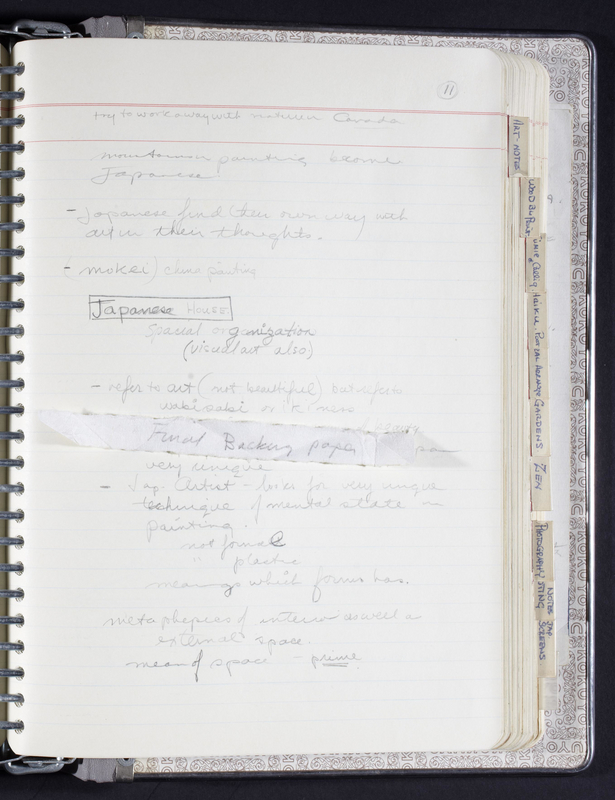 11
try to work away with nature in Canada
mountain painting become
Japanese
- Japanese find their own way with
art in their thoughts.
- (mokei) china painting
Japanese House
spacial organization
(visual art also)
- refer to art (not beautiful) but refers
wabi sabi or
Final Backing paper
very unique
- Jap. Artist - looks for very unique
technique of mental state in
painting.
not formal
" plastic
meanings which forms has.
of interior as well as
external space.
mean of space - prime
ART-NOTES
HAIKU
GARDENS
ZEN
NOTES JAP
SCREENS
KOKUYO